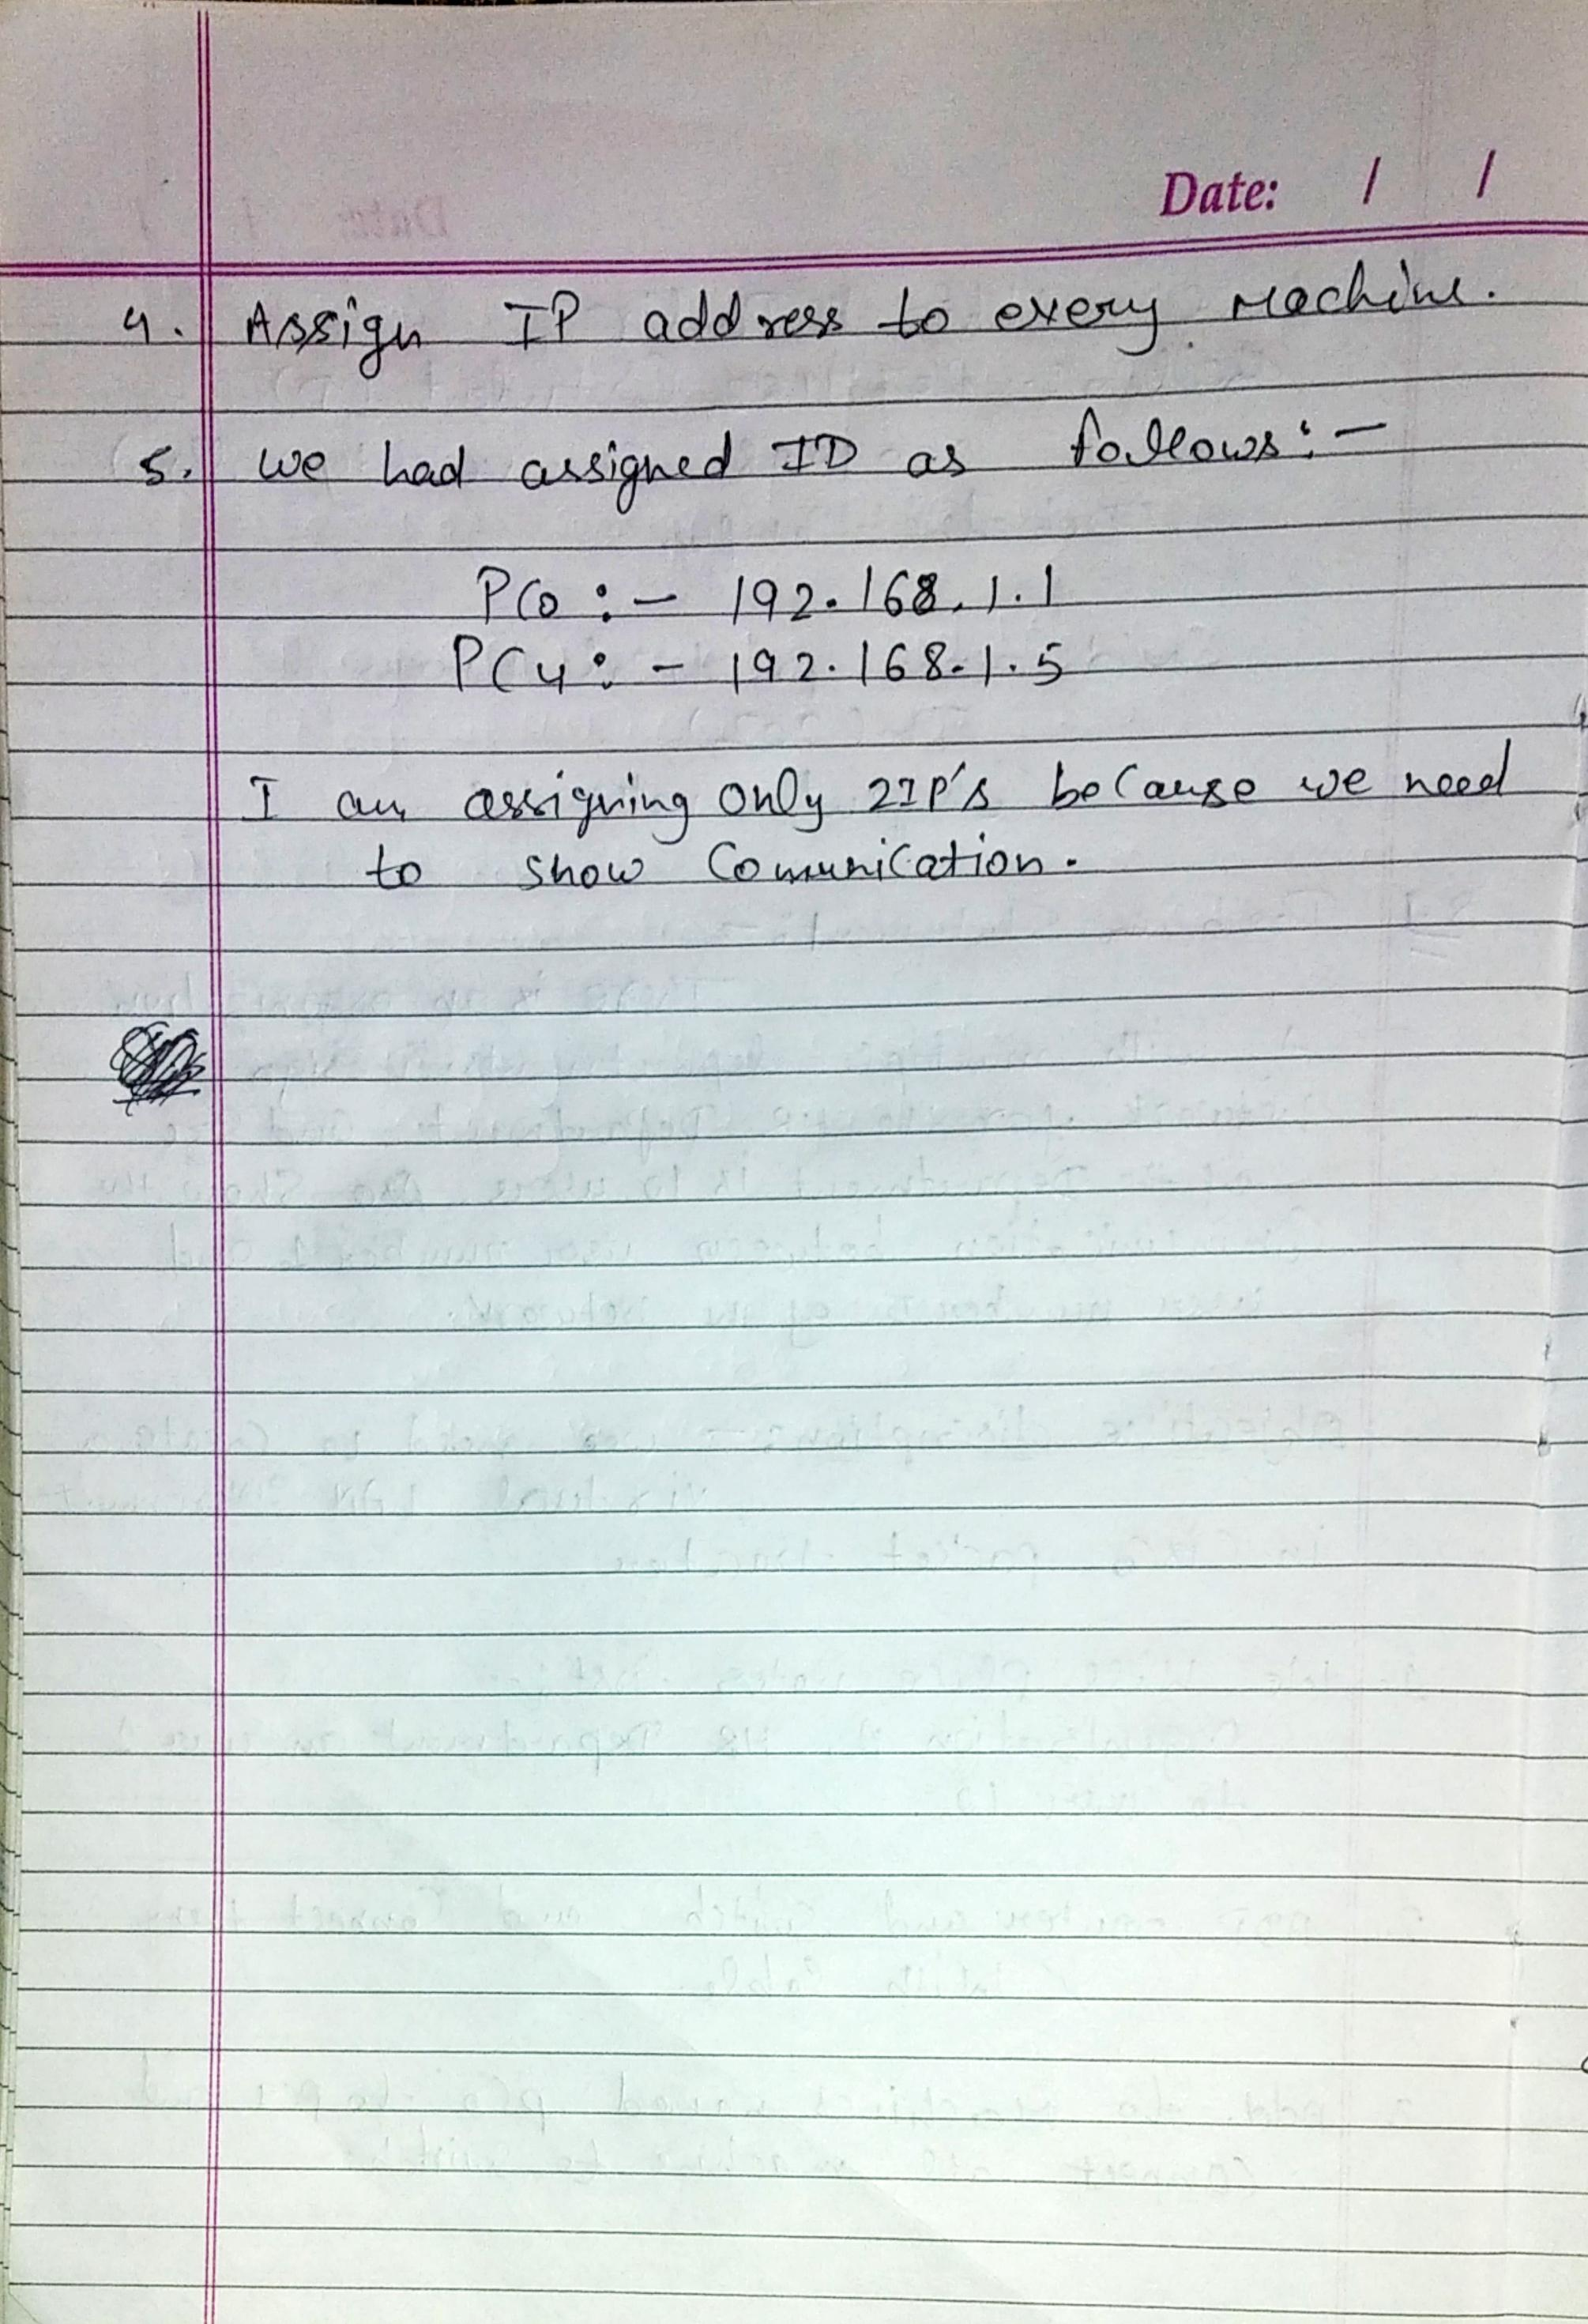 Date: / /
4. Assign IP address to every machine.
5. we had assigned ID as follows:-
PC0 :- 192.168.1.1
PC4 :- 192.168.1.5
I am assigning only 2IP's because we need
to show Comunication.